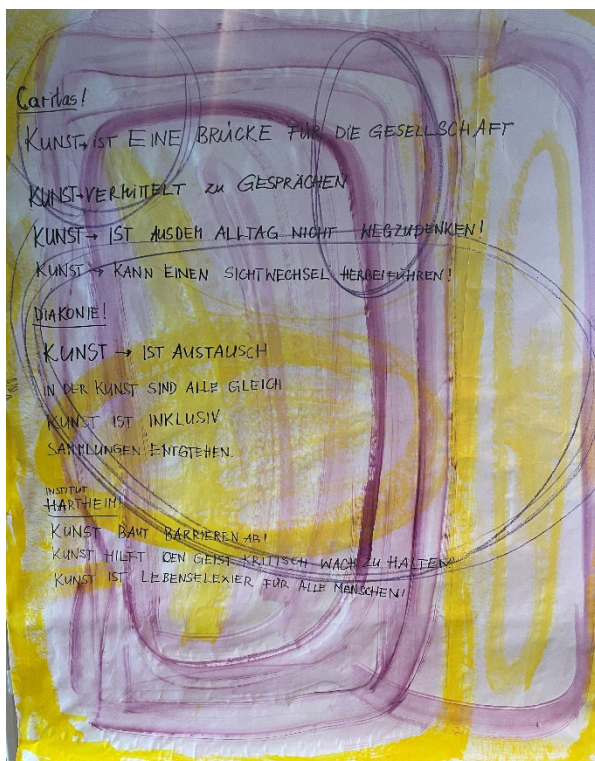 Caritas!
KUNST→ IST EINE BRÜCKE FÜR DIE GESELLSCHAFT
KUNST→VERMITTELT zu GESPRÄCHEN
KUNST→ IST AUSDEM ALLTAG NICHT WEGZUDENKEN!
KUNST→ KANN EINEN SICHTWECHSEL HERBEIFÜHREN!
DIAKONIE!
KUNST → IST AUSTAUSCH
IN DER KUNST SIND ALLE GLEICH
KUNST IST INKLUSIV
SAMMLUNGEN ENTSTEHEN.
INSTITUT
HARTHEIM!
KUNST BAUT BARRIEREN AB!
KUNST HILFT DEN GEIST KRITISCH WACH ZU HALTEN
KUNST IST LEBENSELEXIER FÜR ALLE MENSCHEN!